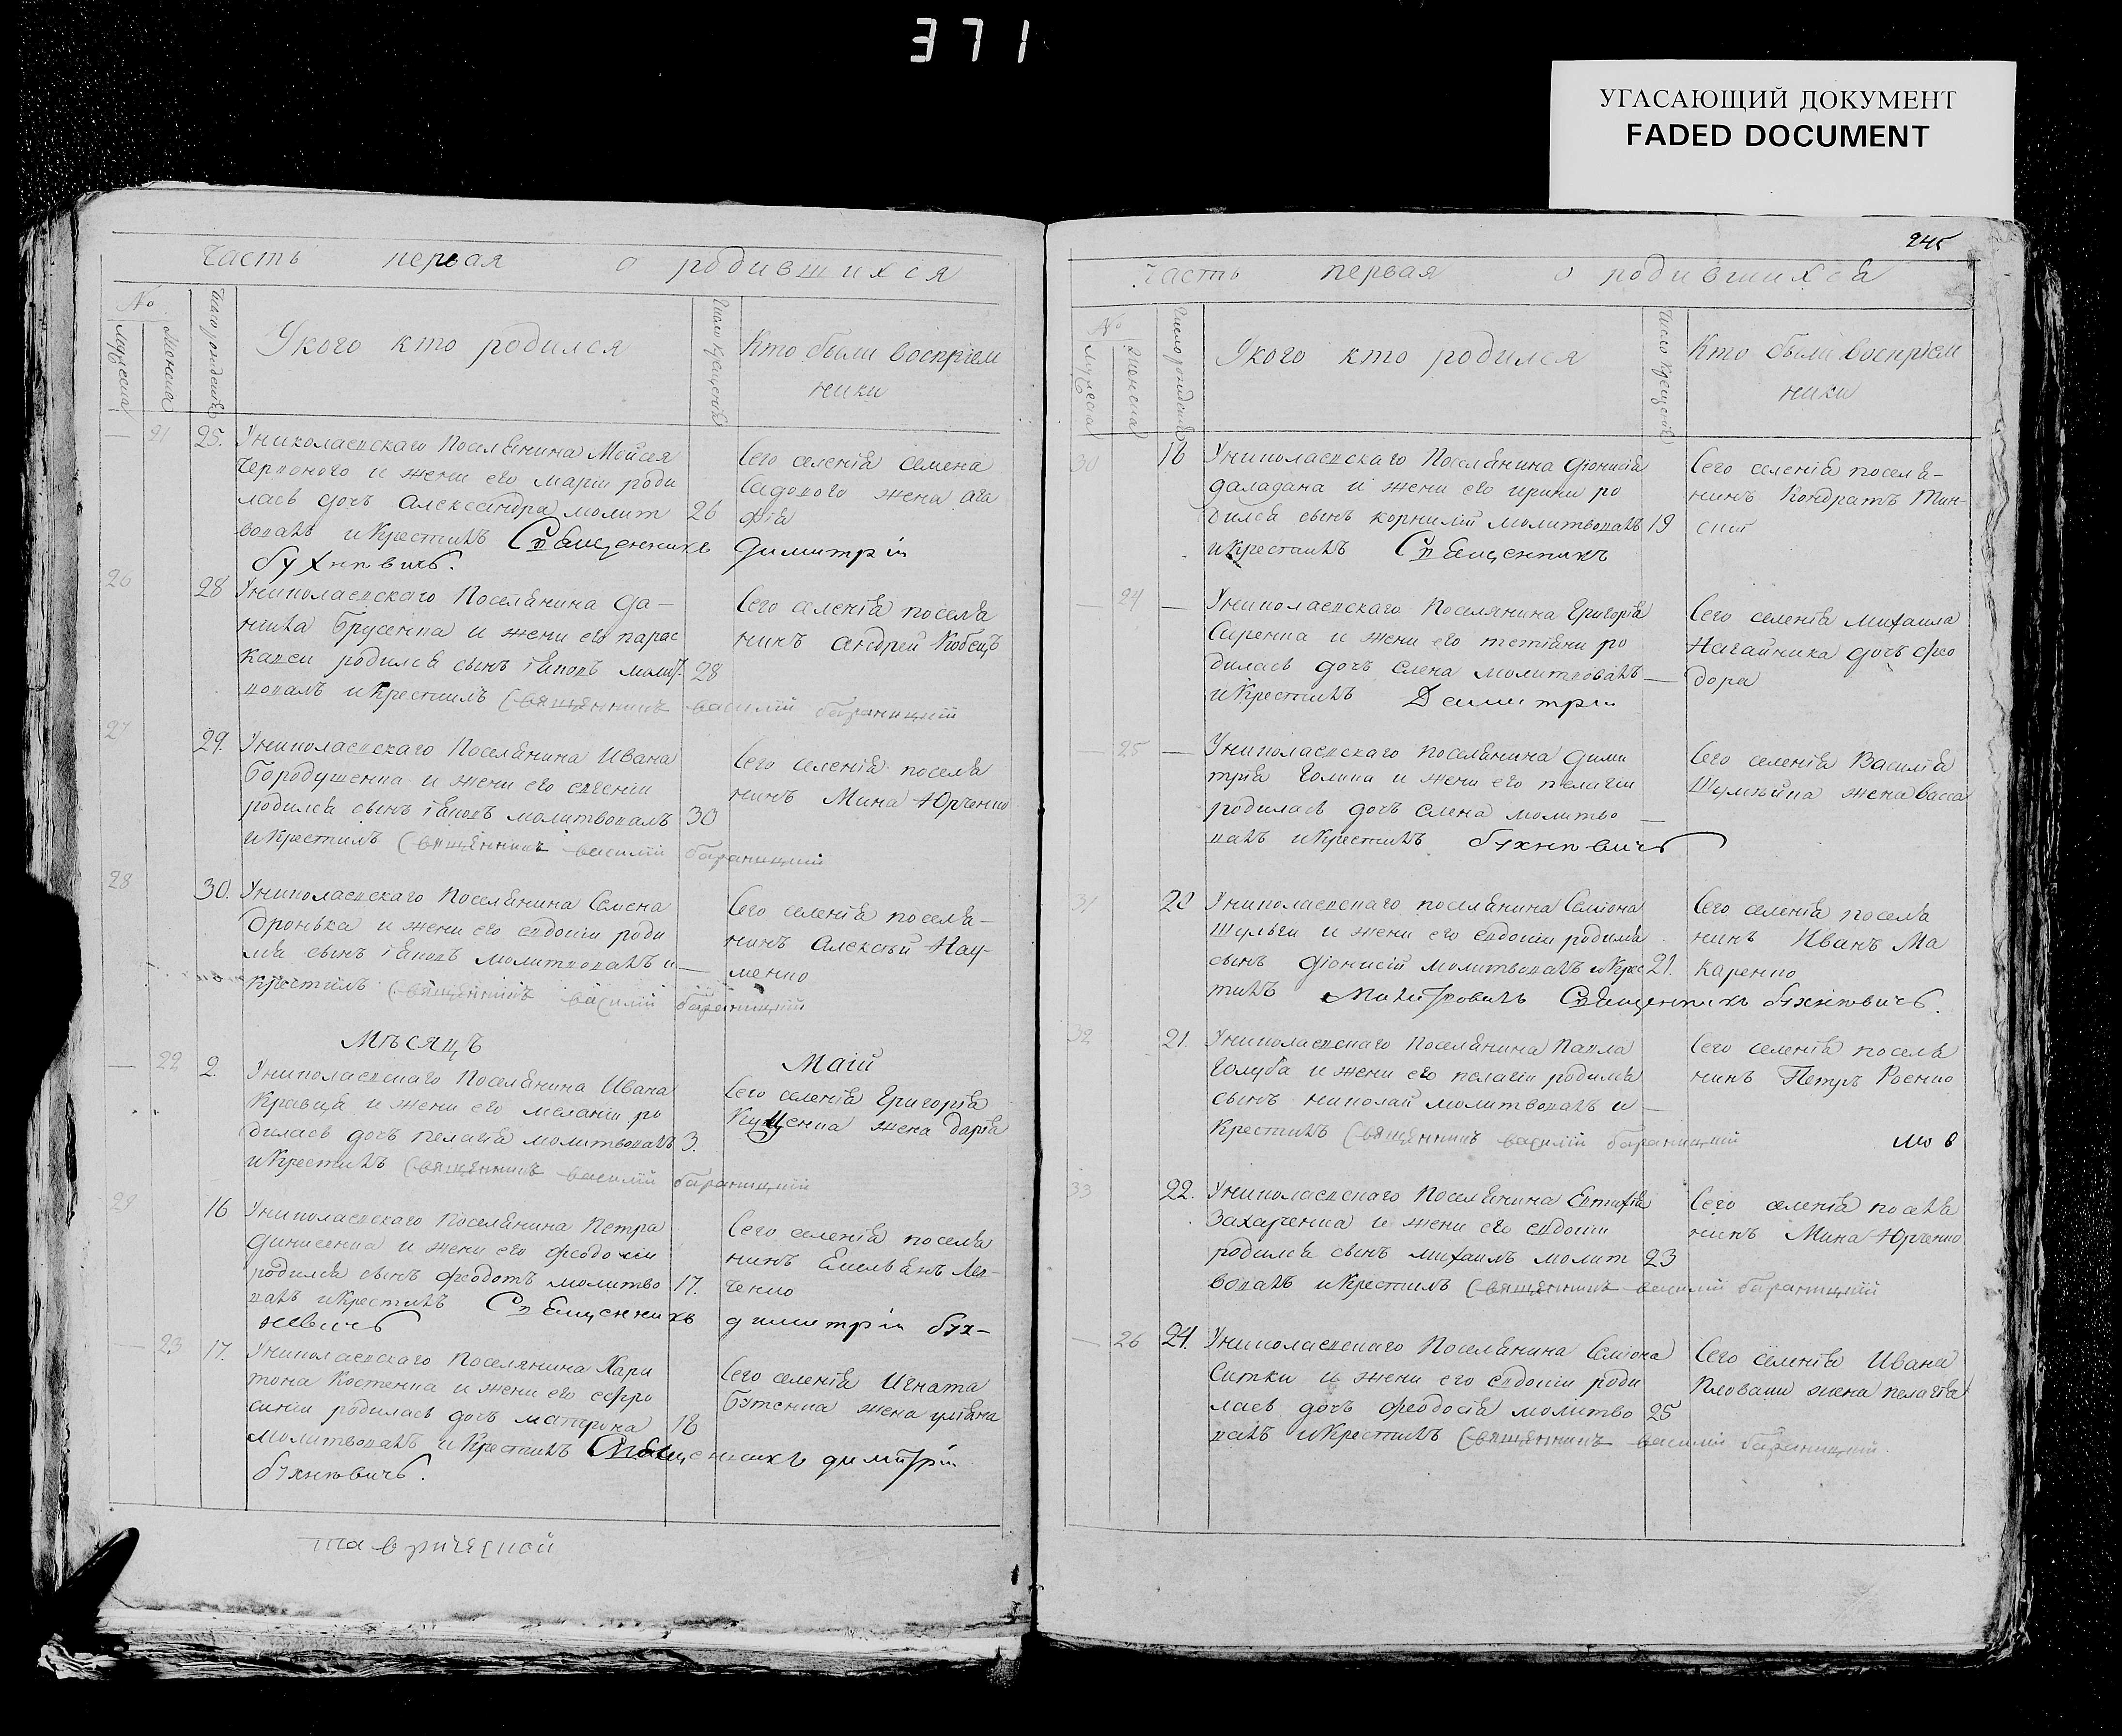 371
УГАСАЮЩИЙ ДОКУМЕНТ
FADED DOCUMENT
Часть первая о родившихся
№
Мужеска
Женска
Число рожденія
У кого кто родился
Число крещенія
Кто были воспріем
ники
21 25. У николаевскаго Поселянина Мойсея
Червоного и жени его маріи роди
лась дочь александра молит
вовалъ и крестилъ Священникъ Димитрій
бухневичъ.
26
Сего селенія семена
Садового жена ага
фія
26 28 У николаевскаго Поселянина Да-
нила Брусенка и жени его парас
кавеи родился сынъ іаковъ молит
вовалъ и крестилъ Священникъ василій бараницкій
28
Сего селенія поселя
нинъ андрей Кобецъ
27 29. У николаевскаго Поселянина Ивана
Бородушенка и жени его евгеніи
родился сынъ іаковъ молитвовалъ
и крестилъ Священникъ василій бараницкій
30
Сего селенія поселя
нинъ Мина Юрченко
28 30. У николаевскаго Поселянина Семена
Дронька и жени его евдокіи роди
лся сынъ іаковъ молитвовалъ и
крестилъ Священникъ василій бараницкій
—
Сего селенія поселя-
нинъ Алексѣй Нау-
менко
Мѣсяцъ Маій
— 22 2. У николаевскаго Поселянина Ивана
Кравца и жени его меланіи ро
дилась дочь пелагія молитвовалъ
и крестилъ Священникъ василій бараницкій
3.
Сего селенія Григорія
Куценка жена дарія
29 16 У николаевскаго Поселянина Петра
Динисенка и жени его феодосіи
родился сынъ феодотъ молитво
валъ и крестилъ Священникъ димитрій бух-
невичъ
17.
Сего селенія поселя
нинъ Емельянъ Лев-
ченко
— 23 17. У николаевскаго Поселянина Хари
тона Костенка и жени его ефро
синіи родилась дочь матрона
молитвовалъ и крестилъ Священникъ димитрій
бухневичъ.
18
Сего селенія Игната
Бутенка жена уліяна
таврической
245
Часть первая о родившихся
№
Мужеска
Женска
Число рожденія
У кого кто родился
Число крещенія
Кто были воспріем
ники
30 16 У николаевскаго Поселянина Діонисія
Даладана и жени его ирини ро
дился сынъ корнилій молитвовалъ
и крестилъ Священникъ
19
Сего селенія поселя-
нинъ Кондратъ Тин-
скій
— 24 — У николаевскаго Поселянина Григорія
Сиренка и жени его тетіяни ро
дилась дочь елена молитвовалъ
и крестилъ Димитрій
—
Сего селенія михаила
Нагайника дочь фео
дора
— 25 — У николаевскаго поселянина дими
трія Голика и жени его пелагіи
родилась дочь елена молитво
валъ и крестилъ бухневичъ
—
Сего селенія Василія
Шумѣйка жена васса
31 20 У николаевскаго поселянина Симіона
Шульги и жени его евдокіи родился
сынъ діонисій молитвовалъ и крес
тилъ Священникъ бухневичъ.
21.
Сего селенія поселя
нинъ Иванъ Ма
каренко
32 21. У николаевскаго Поселянина Павла
Голуба и жени его пелагіи родился
сынъ николай молитвовалъ и
крестилъ Священникъ василій бараницкій
—
Сего селенія поселя
нинъ Петръ Роенко
33 22. У николаевскаго Поселянина Евтихія
Захарченка и жени его евдокіи
родился сынъ михаилъ молит
вовалъ и крестилъ Священникъ василій бараницкій
23
Сего селенія поселя
нинъ Мина Юрченко
— 26 24. У николаевскаго Поселянина Симіона
Ситки и жени его евдокіи роди
лась дочь феодосія молитво
валъ и крестилъ Священникъ василій бараницкій.
25
Сего селенія Ивана
жена пелагія